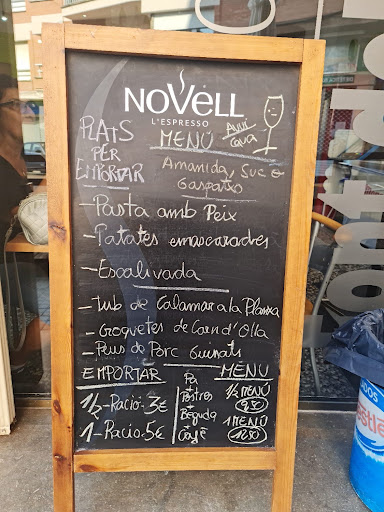 NOVELL
L'ESPRESSO
PLATS
PER
EMPORTAR
MENÚ
AVUI
Cava
Amanida, Suc o
Gaspatxo
-Pasta amb Peix
-Patates emascarades
-Escalivada
-Tub de Calamar a la Planxa
-Croquetes de Carn d'Olla
-Peus de Porc Guisats
EMPORTAR
1/2-Racio-3€
1-Racio-5€
MENÚ
Pa
Postres
Beguda
Cafè
1/2 MENÚ
9,50
1 MENÚ
12,50